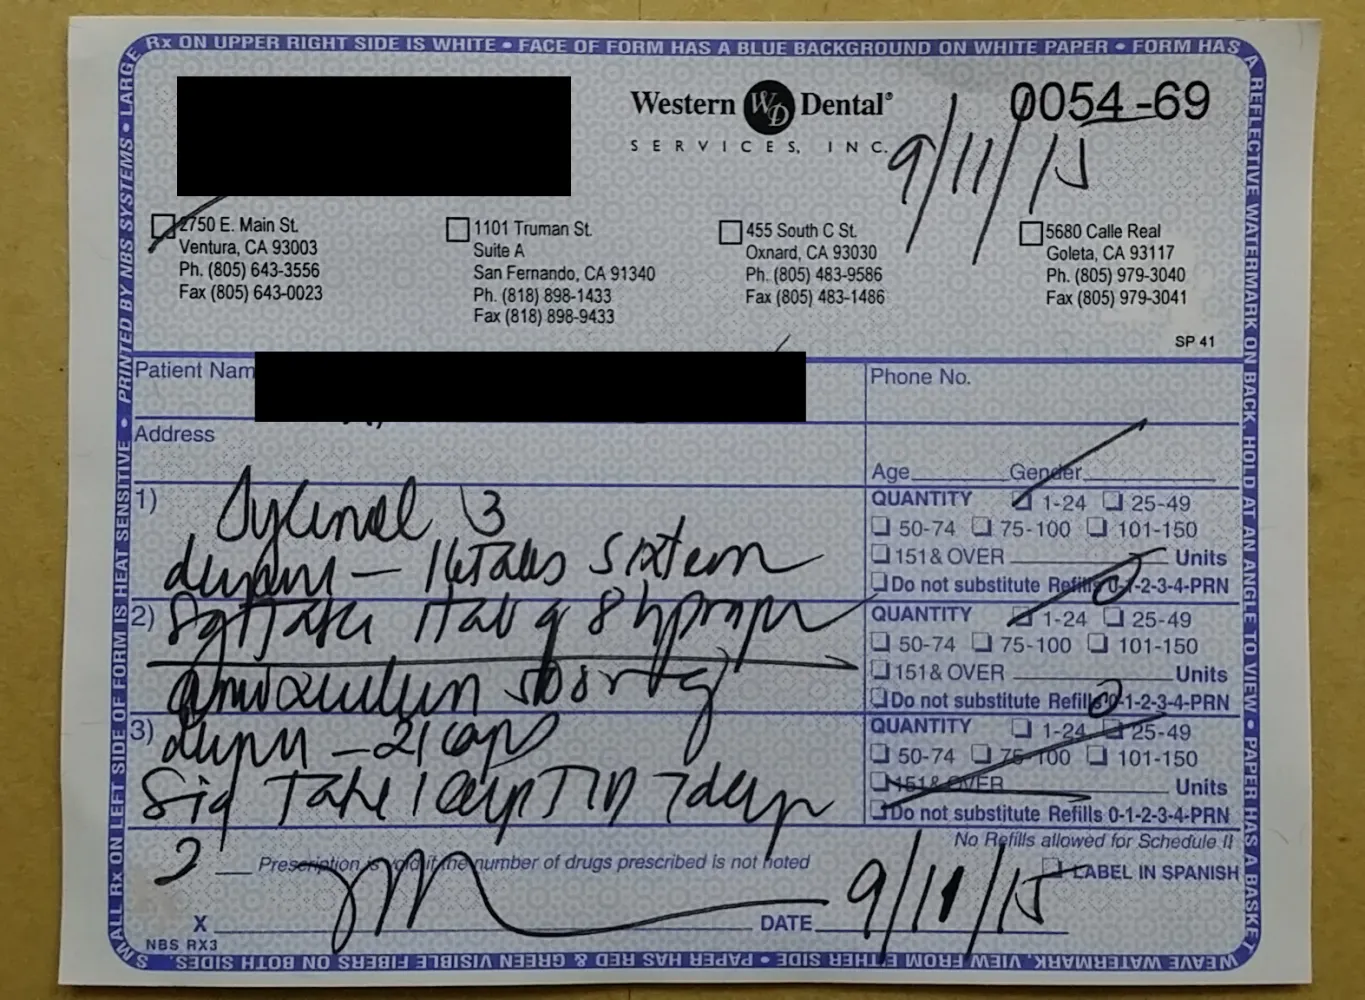 Rx ON UPPER RIGHT SIDE IS WHITE • FACE OF FORM HAS A BLUE BACKGROUND ON WHITE PAPER • FORM HAS
A REFLECTIVE WATERMARK ON BACK, HOLD AT AN ANGLE TO VIEW • PAPER HAS A BASKET
WEAVE WATERMARK, VIEW FROM EITHER SIDE • PAPER HAS RED & GREEN VISIBLE FIBERS ON BOTH SIDES. S
MALL Rx ON LEFT SIDE OF FORM IS HEAT SENSITIVE • PRINTED BY NBS SYSTEMS • LARGE
Western WD Dental®
SERVICES, INC.
0054-69
9/11/15
2750 E. Main St.
Ventura, CA 93003
Ph. (805) 643-3556
Fax (805) 643-0023
1101 Truman St.
Suite A
San Fernando, CA 91340
Ph. (818) 898-1433
Fax (818) 898-9433
455 South C St.
Oxnard, CA 93030
Ph. (805) 483-9586
Fax (805) 483-1486
5680 Calle Real
Goleta, CA 93117
Ph. (805) 979-3040
Fax (805) 979-3041
SP 41
Patient Nam
Phone No.
Address
Age Gender
1) Tylenol 3
16 Tabs sixteen
QUANTITY 1-24 25-49
50-74 75-100 101-150
151 & OVER Units
Do not substitute Refills 0-1-2-3-4-PRN
2) Sig Take 1 tab q 8 h prn
QUANTITY 1-24 25-49
50-74 75-100 101-150
151 & OVER Units
Do not substitute Refills 0-1-2-3-4-PRN
3) 21 cap
Sig Take 1 cap TID 7 days
QUANTITY 1-24 25-49
50-74 75-100 101-150
151 & OVER Units
Do not substitute Refills 0-1-2-3-4-PRN
No Refills allowed for Schedule II
2 Prescription is void if the number of drugs prescribed is not noted
LABEL IN SPANISH
X DATE 9/11/15
NBS RX3